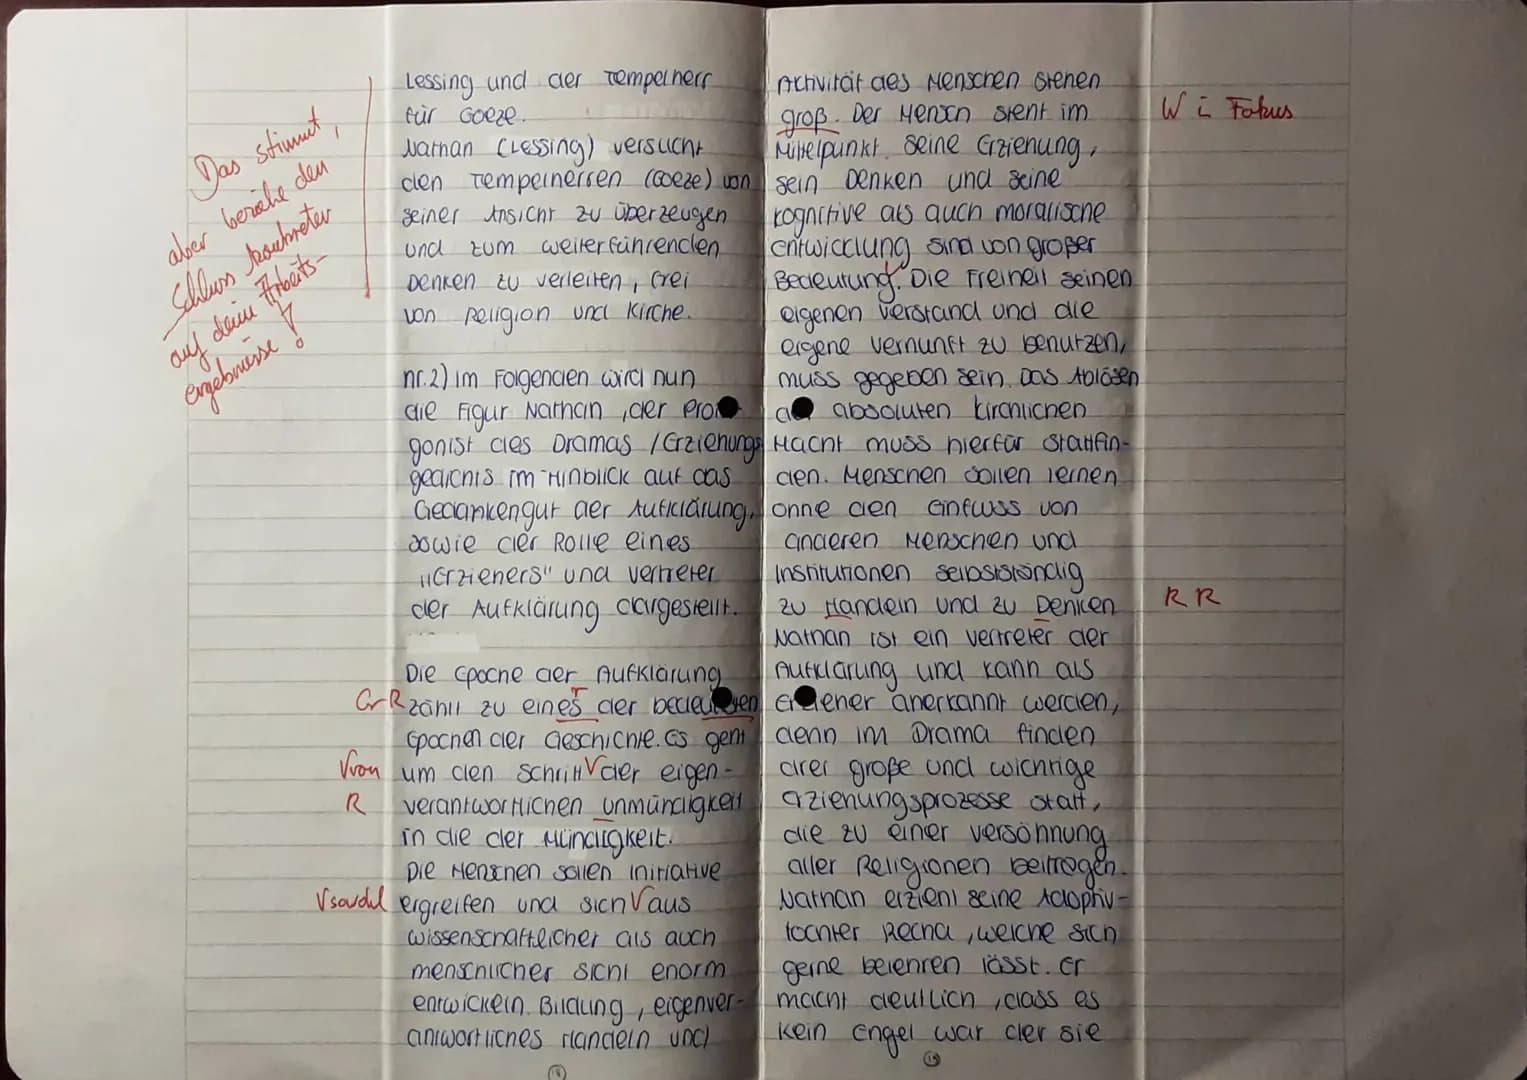 Lessing und der Tempelherr
für Goeze.
Nathan (Lessing) versucht
den Tempelherren (Goeze) von
seiner Ansicht zu überzeugen
und zum weiterführenden
Denken zu verleiten, frei
von Religion und Kirche.
nr.2) Im Folgenden wird nun
die Figur Nathan, der
gonist des Dramas / Erziehungs
gedichts im Hinblick auf das
Gedankengut der Aufklärung,
sowie der Rolle eines
„Erziehers" und Vertreter
der Aufklärung dargestellt.
Die Epoche der Aufklärung
zählt zu eines der
Epochen der Geschichte. Es geht
um den Schritt der eigen-
verantwortlichen Unmündigkeit
in die der Mündigkeit.
Die Menschen sollen Initiative
ergreifen und sich aus
wissenschaftlicher als auch
menschlicher Sicht enorm
entwickeln. Bildung, eigenver-
antwortliches Handeln und
18
Das stimmt,
aber beziehe den
Schluss konkreter
auf deine Arbeits-
ergebnisse!
Gr R
V von
R
V sowohl
Activität des Menschen stehen
groß. Der Mensch steht im
Mittelpunkt. Seine Erziehung,
sein Denken und seine
kognitive als auch moralische
Entwicklung sind von großer
Bedeutung. Die Freiheit seinen
eigenen Verstand und die
eigene Vernunft zu benutzen,
muss gegeben sein. Das Ablösen
absoluten kirchlichen
Macht muss hierfür stattfin-
den. Menschen sollen lernen
ohne den Einfluss von
anderen Menschen und
Institutionen selbstständig
zu Handeln und zu Denken
Nathan ist ein Vertreter der
Aufklärung und kann als
anerkannt werden,
denn im Drama finden
drei große und wichtige
Erziehungsprozesse statt,
die zu einer Versöhnung
aller Religionen beitragen.
Nathan erzieht seine Adoptiv-
tochter Recha, welche sich
gerne belehren lässt. Er
macht deutlich, dass es
kein Engel war der sie
19
W i Fokus
R R